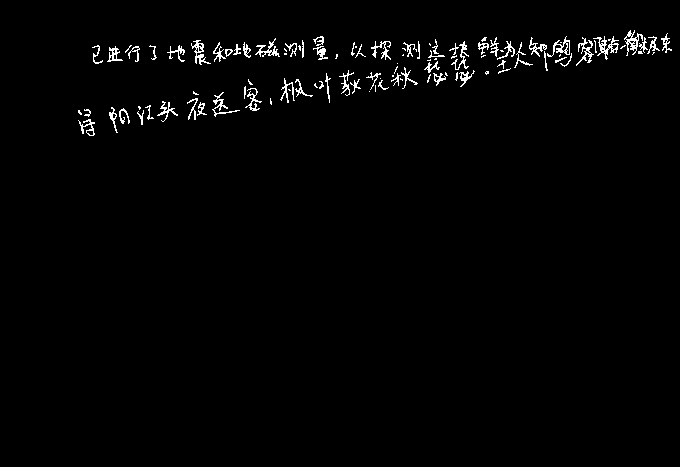 已进行了地震和地磁测量，以探测这些鲜为人知的
浔阳江头夜送客，枫叶荻花秋瑟瑟。主人